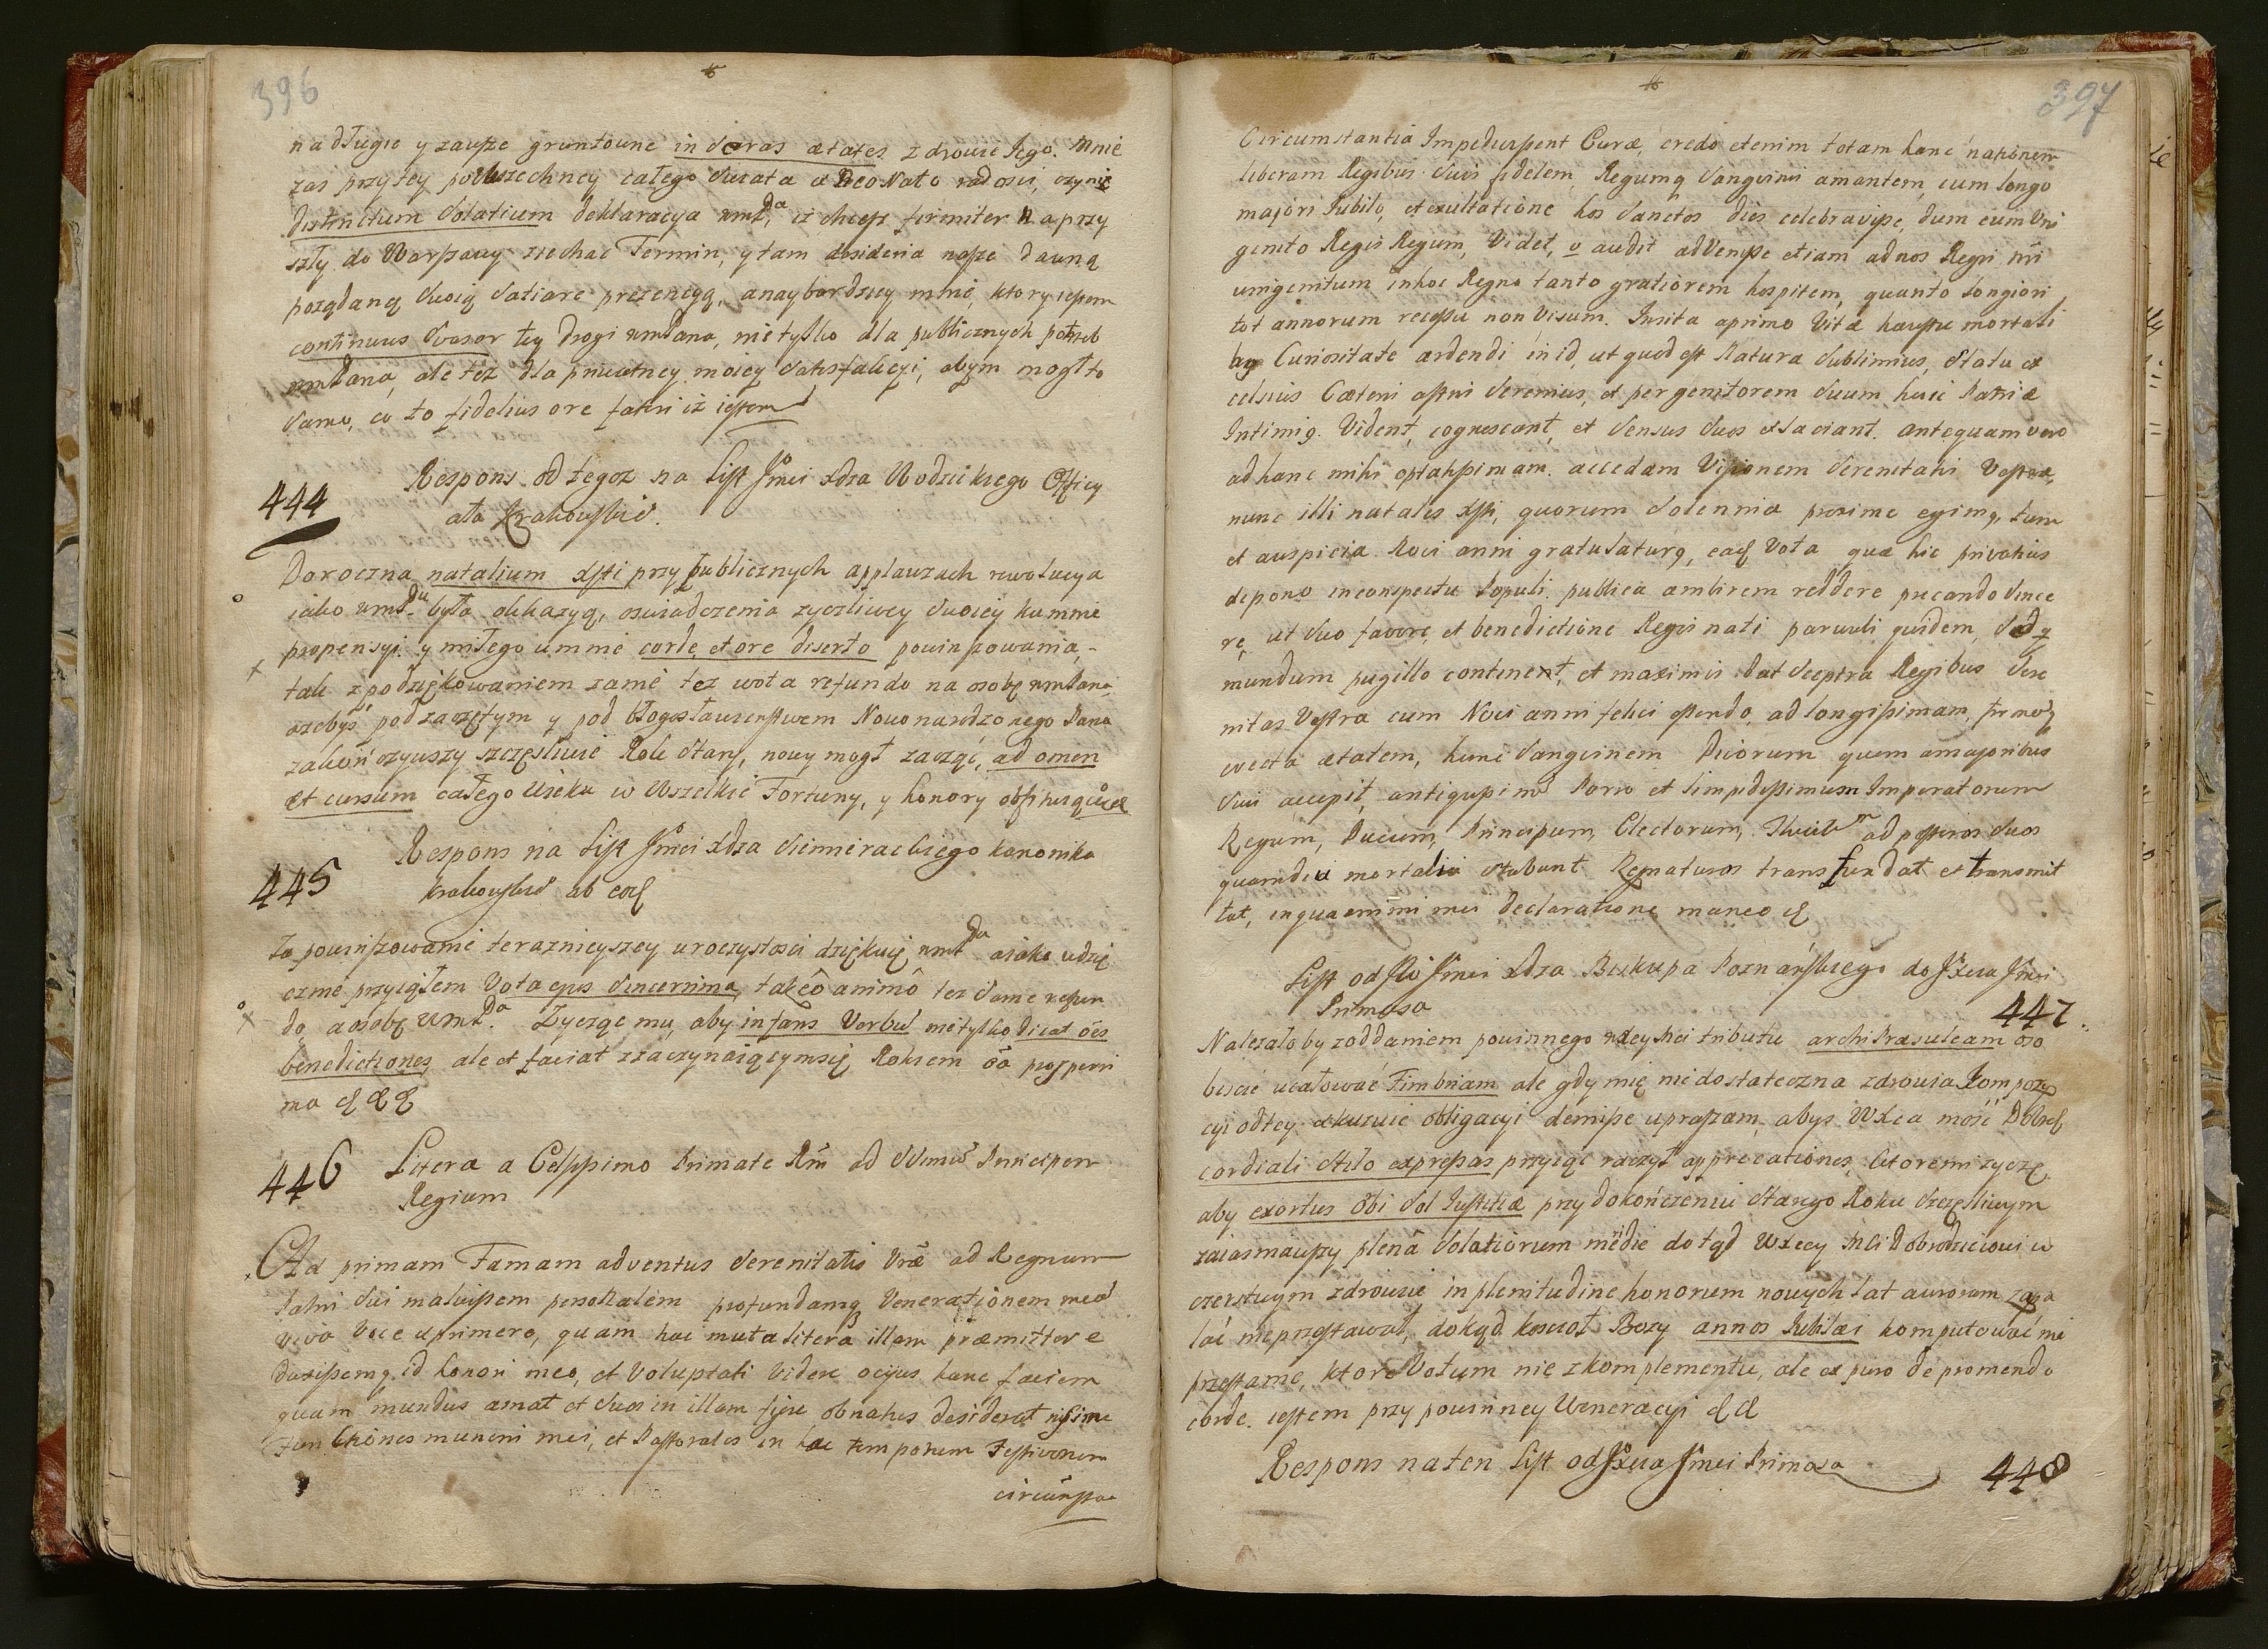 396
na długie y zausze gruntowne in seras ætates zdrowie Jego. Mnie
zas przytey powszechney całego swiata a Deo Nato radosci, czynie
distinctum solatium deklaracya wmćDa, iz chcesz firmiter na przy
szły do Warszawy ziechac Termin, y tam desideria nasze dawną
poządaną swoią satiare prezencyą, a naybardziey mnie, ktory iestem
continuus svasor tey drogi wmPana, nie tylko dla publicznych potrzeb
wmPana, ale tez dla priwatney moiey satisfakcyi, abym mogł to
samo, co to fidelius ore fateri iz iestem
444
Respons od tegoz na List Jmći Xdza Wodzickiego Officy
ała Krakowskie.
Doroczna natalium Xsti przy publicznych applauzach rewolucya
iako wmćDu była okkazyą, oswiadczenia zyczliwey swoiey ku mnie
propensyi y miłego u mnie corde, et ore diserto powinszowania,
tak z podziękowaniem zamé tez wota refundo na osobę wmPana
azebyś pod zaczętym y pod błogosławienstwem Nowonarodzonego Pana
zakończywszy szczęsliwie Rok stary, nowy mogł zacząć, ad omen
et cursum całego Wieku w Wszelkie Fortuny, y honory
445
Respons na List Jmći Xdza Sienierackiego kanonika
krakowskie ab eod
Za powinszowanie teraznieyszey uroczystosci dziękuię wmćDu a iako wdzię
cznie przyiąłem Vota ejus sincerrima, tak eô animô tez same refun
do a osobę wmćDa. Zycząc mu, aby infans Verbu nie tylko dicat oes
benedictiones, ale et faciat z zaczynaiącym się Rokiem oa prosperri
ma & & &
446
Litera a Celssimo Primate Rni ad Principem
Regium
Ad primam Famam adventus Serenitatis Vræ ad Regnum
Patris sui maluissem personalem profundamq Venerationem meã
viva Voce exprimere, quam hac muta litera illam præmittere
duxissemq id honori meo, et Voluptati Videre ocyus hanc faciem
quam mundus amat et suos in illam figere obnatus desiderat nisi me
functiones muneris mei, et Pastorales in hac temporum Festivorum
circumstan
397
Circumstantia Impediissent Curæ, credo etenim totam hanc nationem
liberam Regibus suis fidelem, Regumq Sangvini amantem, cum longo
majori Iubilo, et exultatione hos sanctos dies celebravisse, dum cum Uni
genito Regis Regum, Videt, et audit advenisse etiam ad nos Regis nri
unigenitum in hoc Regno tanto gratiorem hospitem, quanto longiori
tot annorum recessu non Visum. Insita a primo Vitæ haustu mortali
bq Curiositate ardendi in id, ut quod est Natura sublimius, statu ex
celsius Cæteris astris serenius, et per genitorem suum huic Patriæ
Intimiq. Vident, cognoscant, et sensus suos satiant. antequam vero
ad hanc mihi optatissimam accedam Visionem Serenitatis Vestræ,
nunc illi natales Xsti, quorum solennia proxime egimq, tum
et auspicia Novi anni gratulaturq, ead Vota quæ hic privatius
depono in conspectu Populi publica ambirem reddere precando since
re, ut suo favore, et benedictione Regis nati parvuli quidem, sed q
mundum pugillo continent, et maximis dat sceptra Regibus Sere
nitas Vestra cum Novi anni felici essendo, ad longissimam, firmaq
evecta ætatem, hunc Sangvinem Divorum quem a majoribus
suis accepit, antiquissimo Pario et limpidissimum Imperatorum
Regum, Ducum, Principum, Electorum, ad posteros suos
quamdiu mortalia stabunt Regnaturos transfundat et transmit
tat, in qua animi mei declaratione maneo &
List od Jmći Xdza Biskupa Poznańskiego do JXcia Jmći
Primasa
447.
Nalezało by z oddaniem powinnego Xcey Mci tributu archi Præsuleam oso
biscie ucałować Fimbriam ale gdy mię niedostateczna zdrowia Kompozy
cyi odtey exkuzuie obligacyi demisse upraszam, abys WXca mość Dobrd
cordiali stilo expressas przyiąć raczył apprecationes, ktoremi zyczę,
aby exortus Tibi Sol Iustitiæ przy dokończeniu starego Roku szczęsliwym
zaiasniawszy plenâ solatiorum mëdie dotąd WXcey Mci Dobrodzieiowi w
czerstwym zdrowiu in plenitudine honorum nowych lat auroram zapa
lać nieprzestawał, dokąd koscioł Bozy annos Iubilæi komputować nie
przestanie, ktore Votum nie z komplementu, ale ex puro depromendo
corde iestem przy powinney Weneracyi & &
Respons na ten List od JXcia Jmći Primasa
448